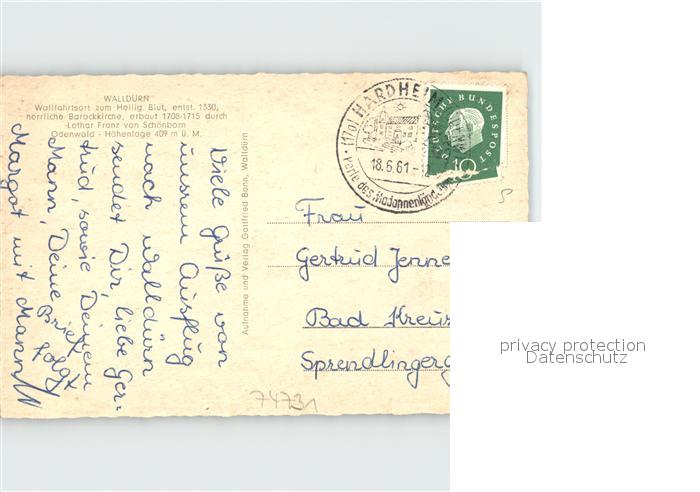 WALLDÜRN
Wallfahrtsort zum Heilig. Blut, entst. 1330,
herrliche Barockkirche, erbaut 1708-1715 durch
Lothar Franz von Schönborn
Odenwald - Höhenlage 409 m ü. M.
Viele Grüße von
unserem Ausflug
nach Walldürn
sendet Dir, liebe Ger-
trud, sowie Deinem
Mann, Deine
Margot mit Mann
Brief
folgt
Aufnahme und Verlag Gottfried Bonn, Walldürn
(17a) HARDHEIM
18.6.61
Perle des Madonnenländchens
DEUTSCHE BUNDESPOST
10
5
Frau
Gertrud Jenne
Bad Kreuz
Sprendlinger
74731
privacy protection
Datenschutz